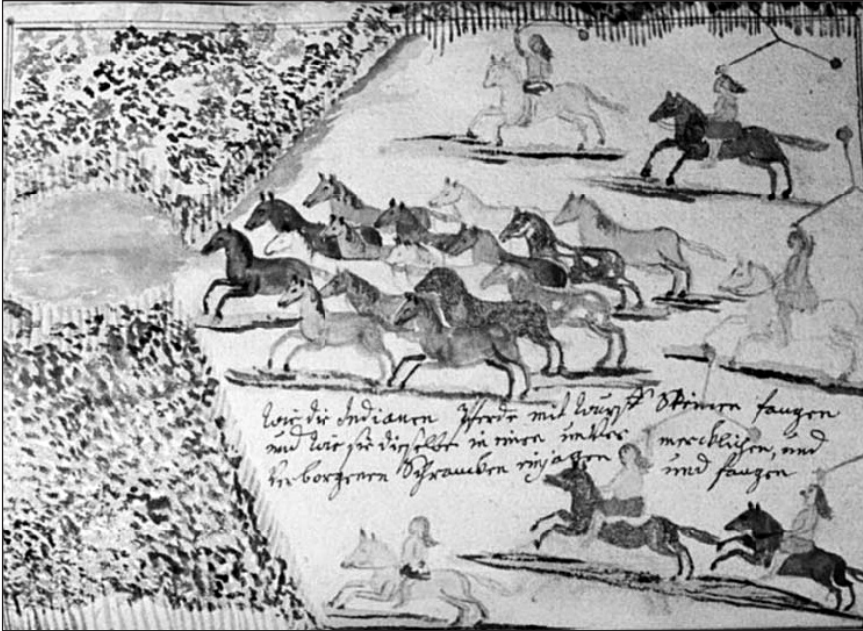 wie die Indianer Pferde mit Wurff Steinen fangen
und wie sie dieselbe in einen unver mercklichen, und
verborgenen Schrancken einjagen und fangen